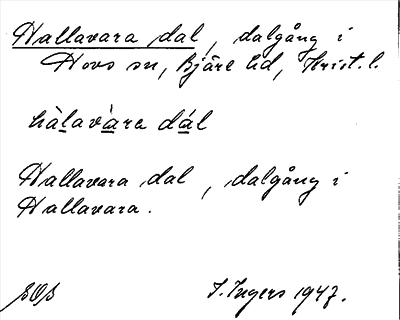 Hallavara dal, dalgång i
Hovs sn, Bjäre hd, Krist. l.
hàlavàra dál
Hallavara dal, dalgång i
Hallavara.
I. Ingers 1947.